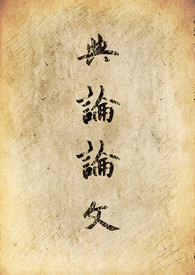 典論論文